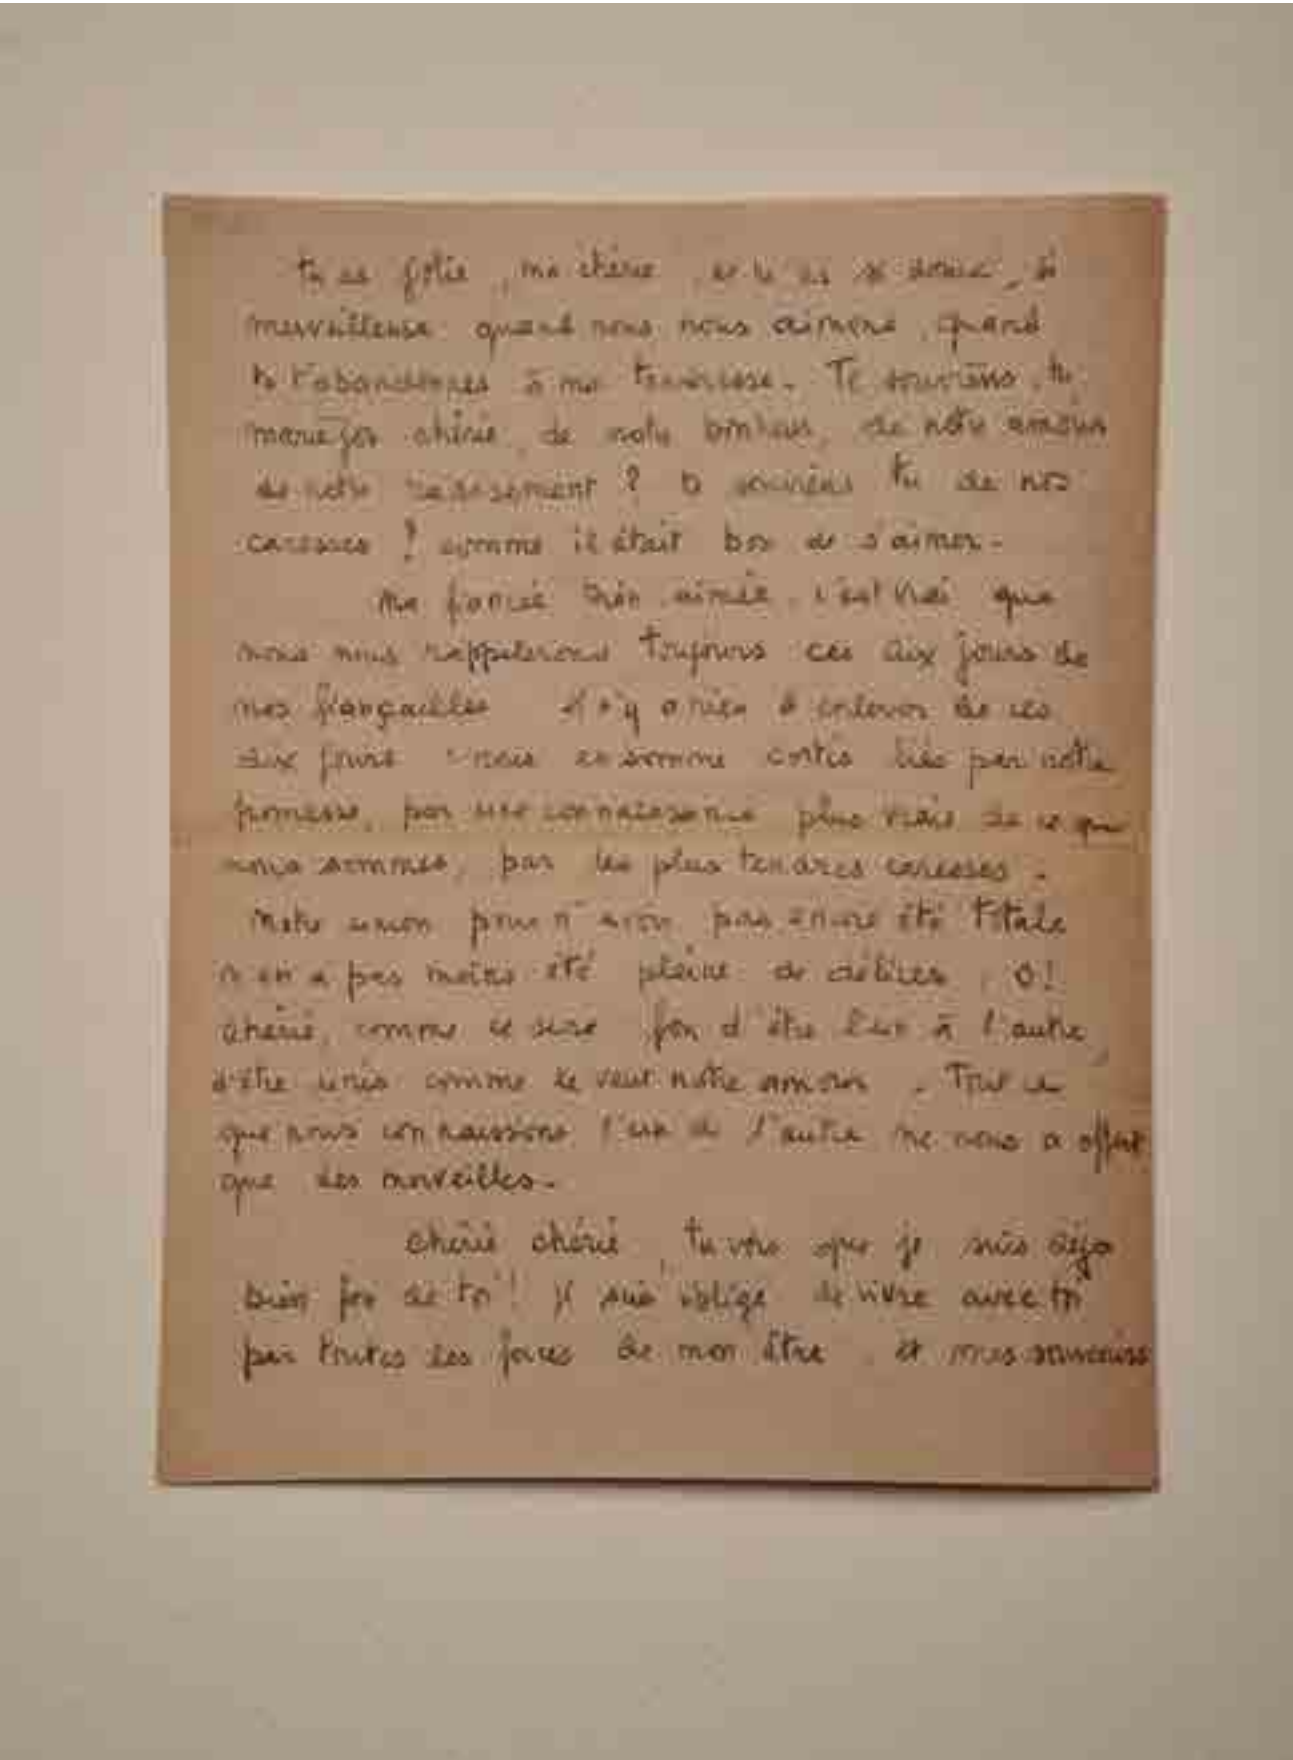 tu es jolie, ma chérie, et tu es si douce, si
merveilleuse quand nous nous aimons, quand
tu t'abandonnes à ma tendresse. Te souviens-tu,
chérie, de notre bonheur, de notre amour
de notre ? te souviens tu de nos
caresses ? comme il était bon de s'aimer.
Ma fiancée très aimée, c'est vrai que
nous nous rappelerons toujours ces dix jours de
nos fiançailles il n'y a rien à enlever de ces
dix jours nous en sommes sortis liés par notre
promesse, par une connaissance plus vraie de ce que
nous sommes, par les plus tendres caresses.
Notre union pour n'avoir pas encore été totale
n'en a pas moins été pleine de délices. O!
chérie, comme ce sera bon d'être l'un à l'autre,
d'être unis comme le veut notre amour. Tout ce
que nous connaissions l'un de l'autre ne nous a offert
que des merveilles.
Chérie chérie, tu vois que je suis déjà
bien fou de toi! Je suis obligé de vivre avec toi
par toutes les forces de mon être, et mes souvenirs